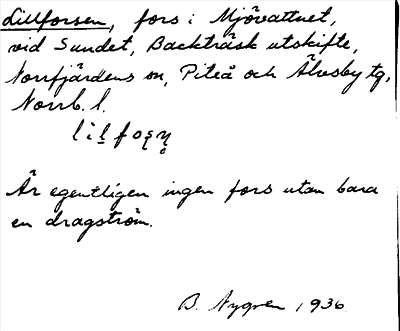 Lillforsen, fors i Mjövattnet,
vid Sundet, Backträsk utskifte,
Norrfjärdens sn, Piteå och Älvsby tg,
Norrb. l.
Är egentligen ingen fors utan bara
en dragström.
B. Nygren 1936